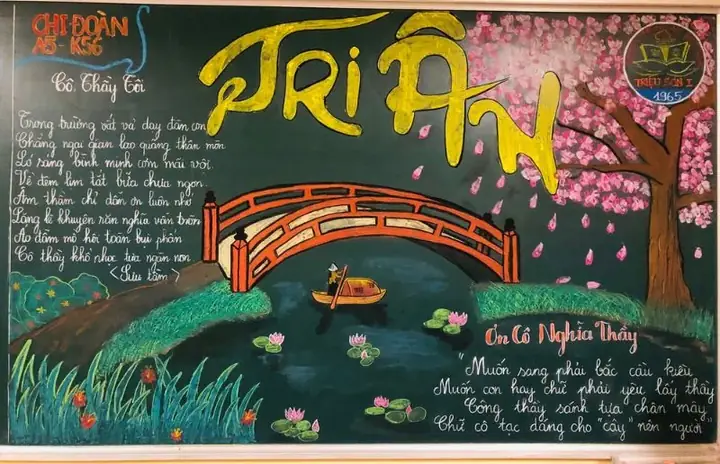 CHI ĐOÀN
A5 - K56
TRI ÂN
TRIỆU SƠN I
1965
Cô, Thầy Tôi
Trong trường vất vả dạy đàn con
Chẳng ngại gian lao quảng thân mòn
Ló sáng bình minh cơm mãi vội
Về đêm lịm tắt bữa chưa ngon
Âm thầm chỉ dẫn ơn luôn nhớ
Lặng lẽ khuyên răn nghĩa vẫn tròn
Áo đẫm mồ hôi toàn bụi phấn
Cô thầy khổ nhọc tựa ngàn non
<Sưu tầm>
Ơn Cô Nghĩa Thầy
"Muốn sang phải bắc cầu kiều
Muốn con hay chữ phải yêu lấy thầy
Công thầy sánh tựa "chân mây"
Chữ cô tạc dáng cho "cây" nên người"